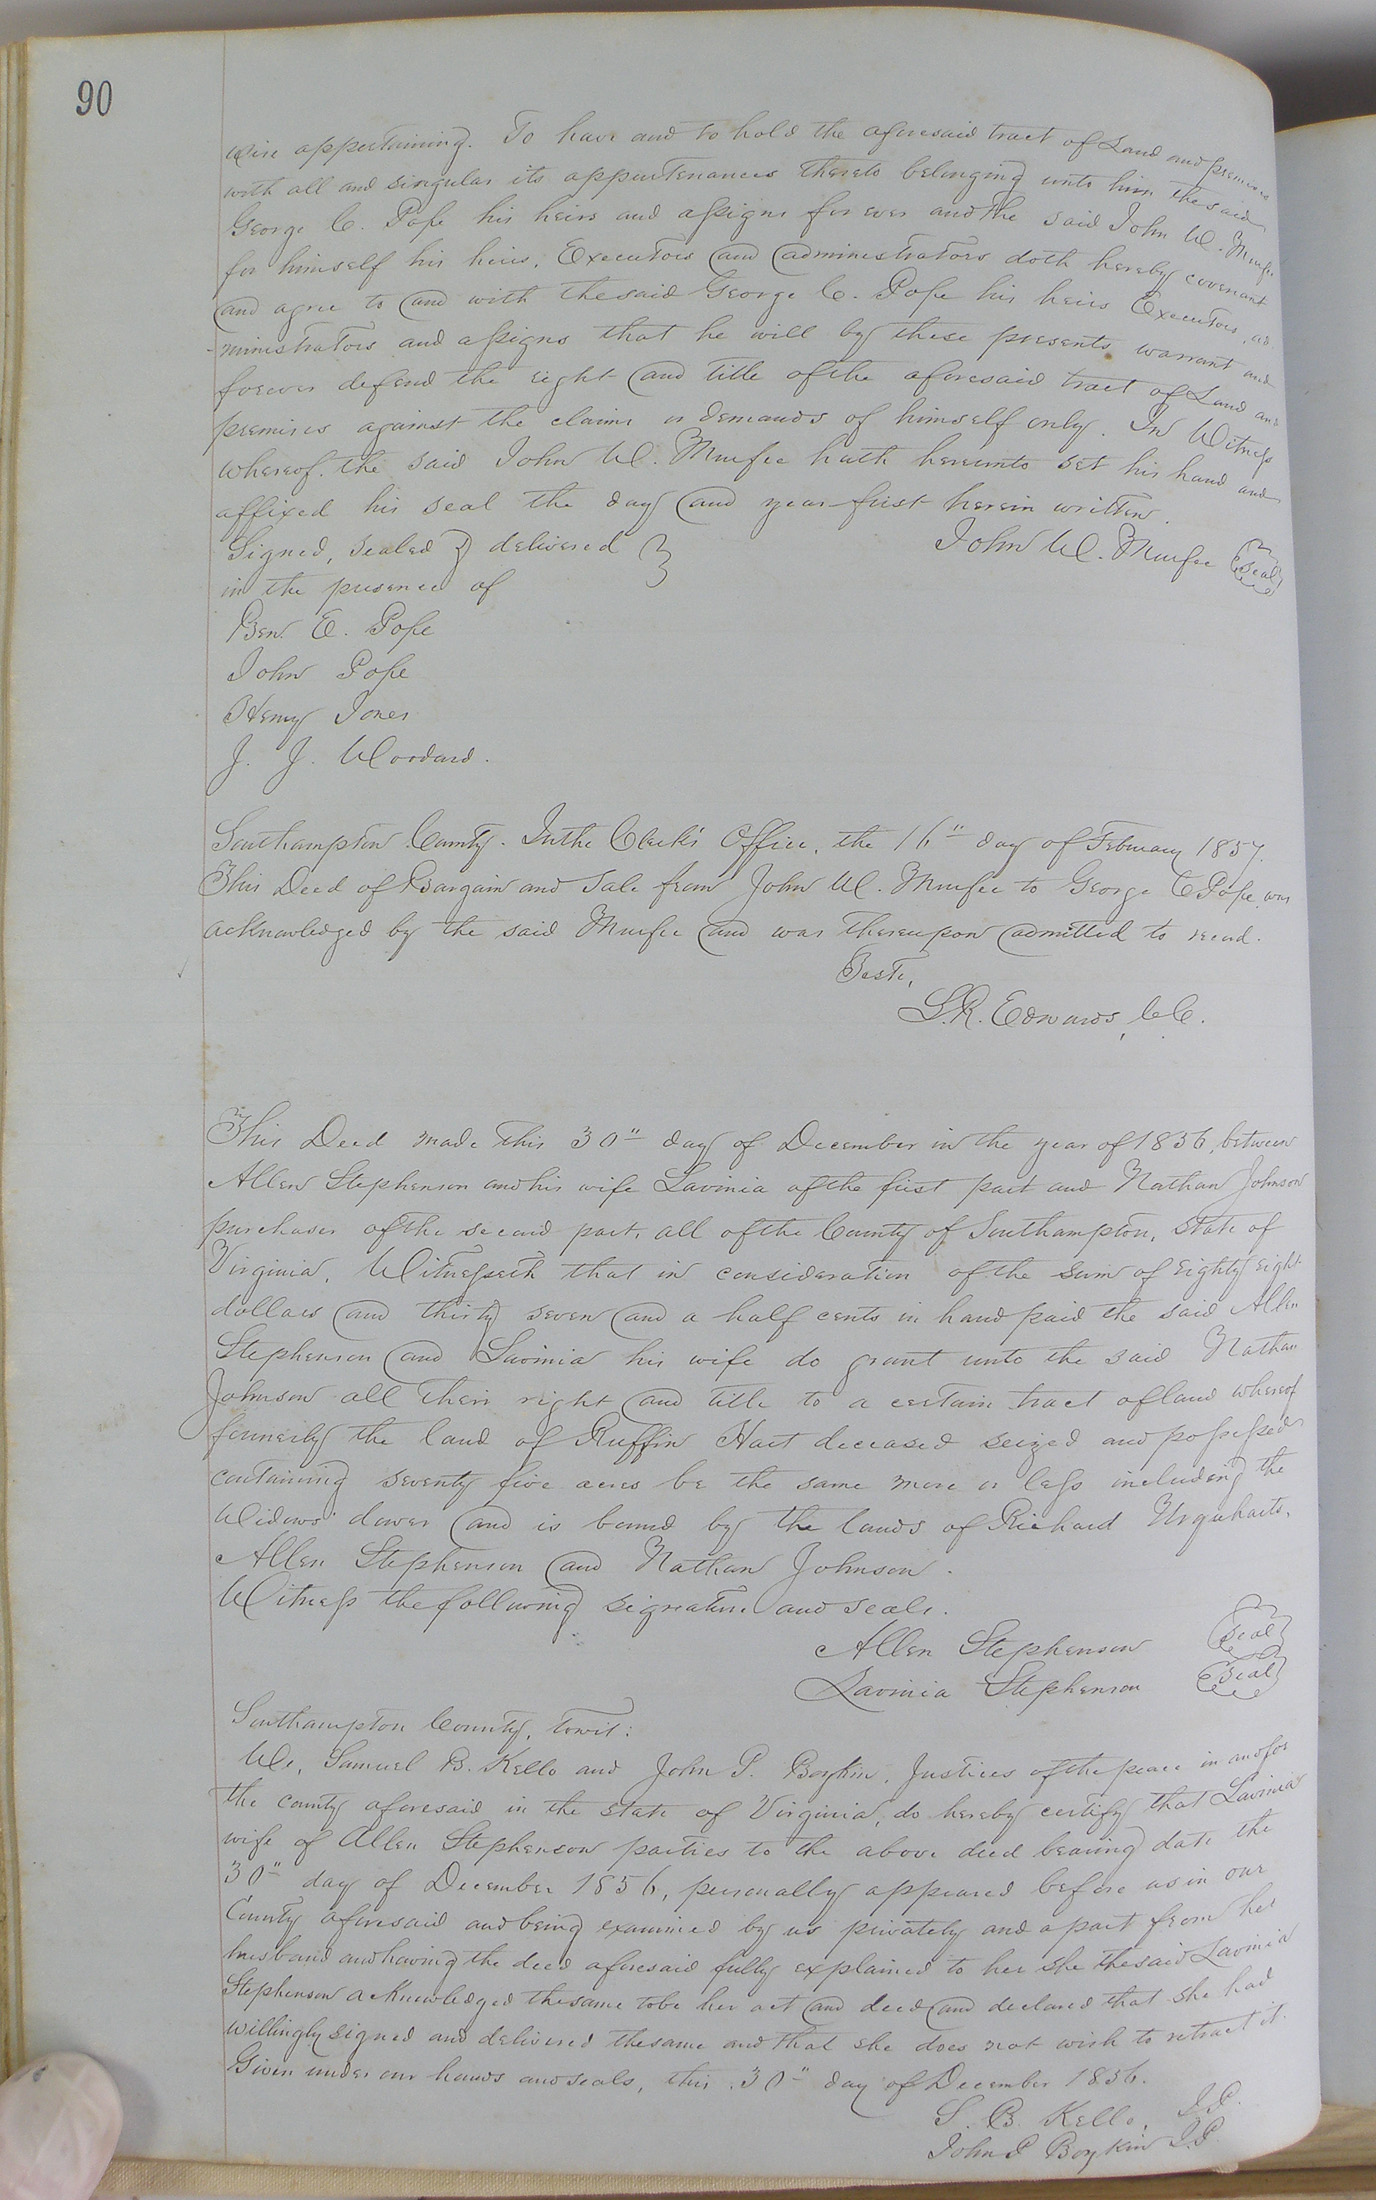 90
wise appertaining. To have and to hold the aforesaid tract of Land and premises
with all and singular its appurtenances thereto belonging unto him the said
George C. Pope his heirs and assigns forever and the said John W. Murfee
for himself his heirs, Executors and administrators doth hereby covenant
and agree to and with the said George C. Pope his heirs Executors, ad
-ministrators and assigns that he will by these presents warrant and
forever defend the right and title of the aforesaid tract of Land and
premises against the claims or demands of himself only. In Witness
whereof the said John W. Murfee hath hereunto set his hand and
affixed his seal the day and year first herein written.
Signed, sealed & delivered } John W. Murfee {Seal}
in the presence of
Ben. E. Pope
John Pope
Henry Jones
J. J. Woodard.
Southampton County. In the Clerk's Office, the 16" day of February 1857.
This Deed of Bargain and Sale from John W. Murfee to George C Pope was
acknowledged by the said Murfee and was thereupon admitted to record.
Teste,
L.R. Edwards, C.C.
This Deed made this 30" day of December in the year of 1856, between
Allen Stephenson and his wife Lavinia of the first part and Nathan Johnson
purchaser of the second part, all of the County of Southampton, State of
Virginia, Witnesseth that in consideration of the sum of Eighty eight
dollars and thirty seven and a half cents in hand paid the said Allen
Stephenson and Lavinia his wife do grant unto the said Nathan
Johnson all their right and title to a certain tract of land whereof
formerly the land of Ruffin Hart deceased seized and possessed
containing seventy five acres be the same more or less including the
Widows' dower and is bound by the lands of Richard Urquharts,
Allen Stephenson and Nathan Johnson.
Witness the following signature and seals.
Allen Stephenson {Seal}
Lavinia Stephenson {Seal}
Southampton County, towit:
We, Samuel B. Kello and John P. Boykin, Justices of the peace in and for
the county aforesaid in the state of Virginia, do hereby certify that Lavinia
wife of Allen Stephenson parties to the above deed bearing date the
30" day of December 1856, personally appeared before us in our
County aforesaid and being examined by us privately and apart from her
husband and having the deed aforesaid fully explained to her she the said Lavinia
Stephenson acknowledged the same to be her act and deed and declared that she had
willingly signed and delivered the same and that she does not wish to retract it.
Given under our hands and seals, this 30" day of December 1856.
S. B. Kello, J.P.
John P Boykin J.P